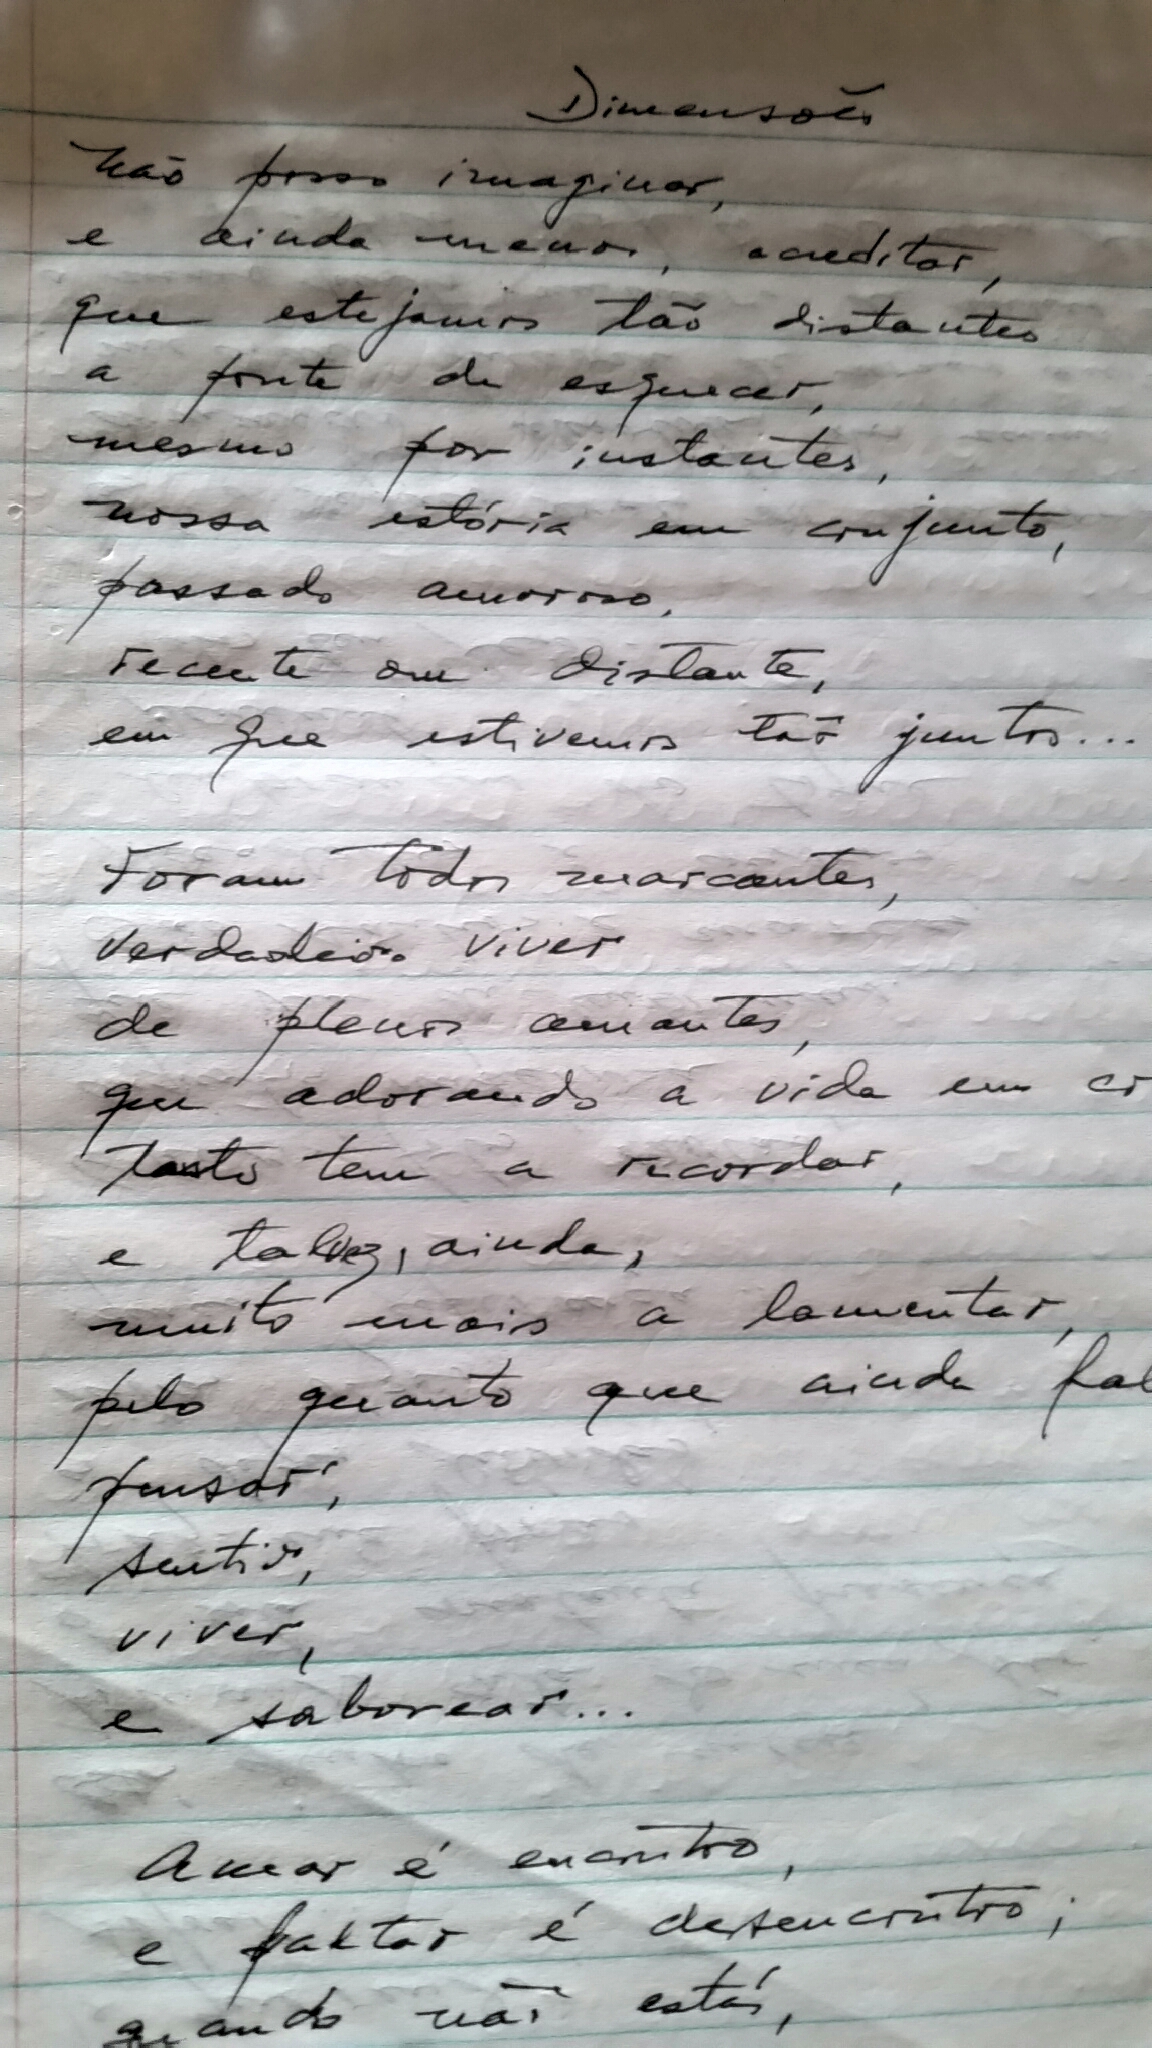 Dimensões
Não posso imaginar,
e ainda menos, acreditar,
que estejamos tão distantes
a ponto de esquecer,
mesmo por instantes,
nossa estória em conjunto,
passado amoroso,
recente ou distante,
em que estivemos tão juntos...
Foram todos marcantes,
verdadeiro viver
de plenos amantes,
que adorando a vida em
tanto tem a recordar,
e talvez, ainda,
muito mais a lamentar,
pelo quanto que ainda
pensar,
sentir,
viver,
e saborear...
Amar é encontro,
e faltar é desencontro;
quando não estás,